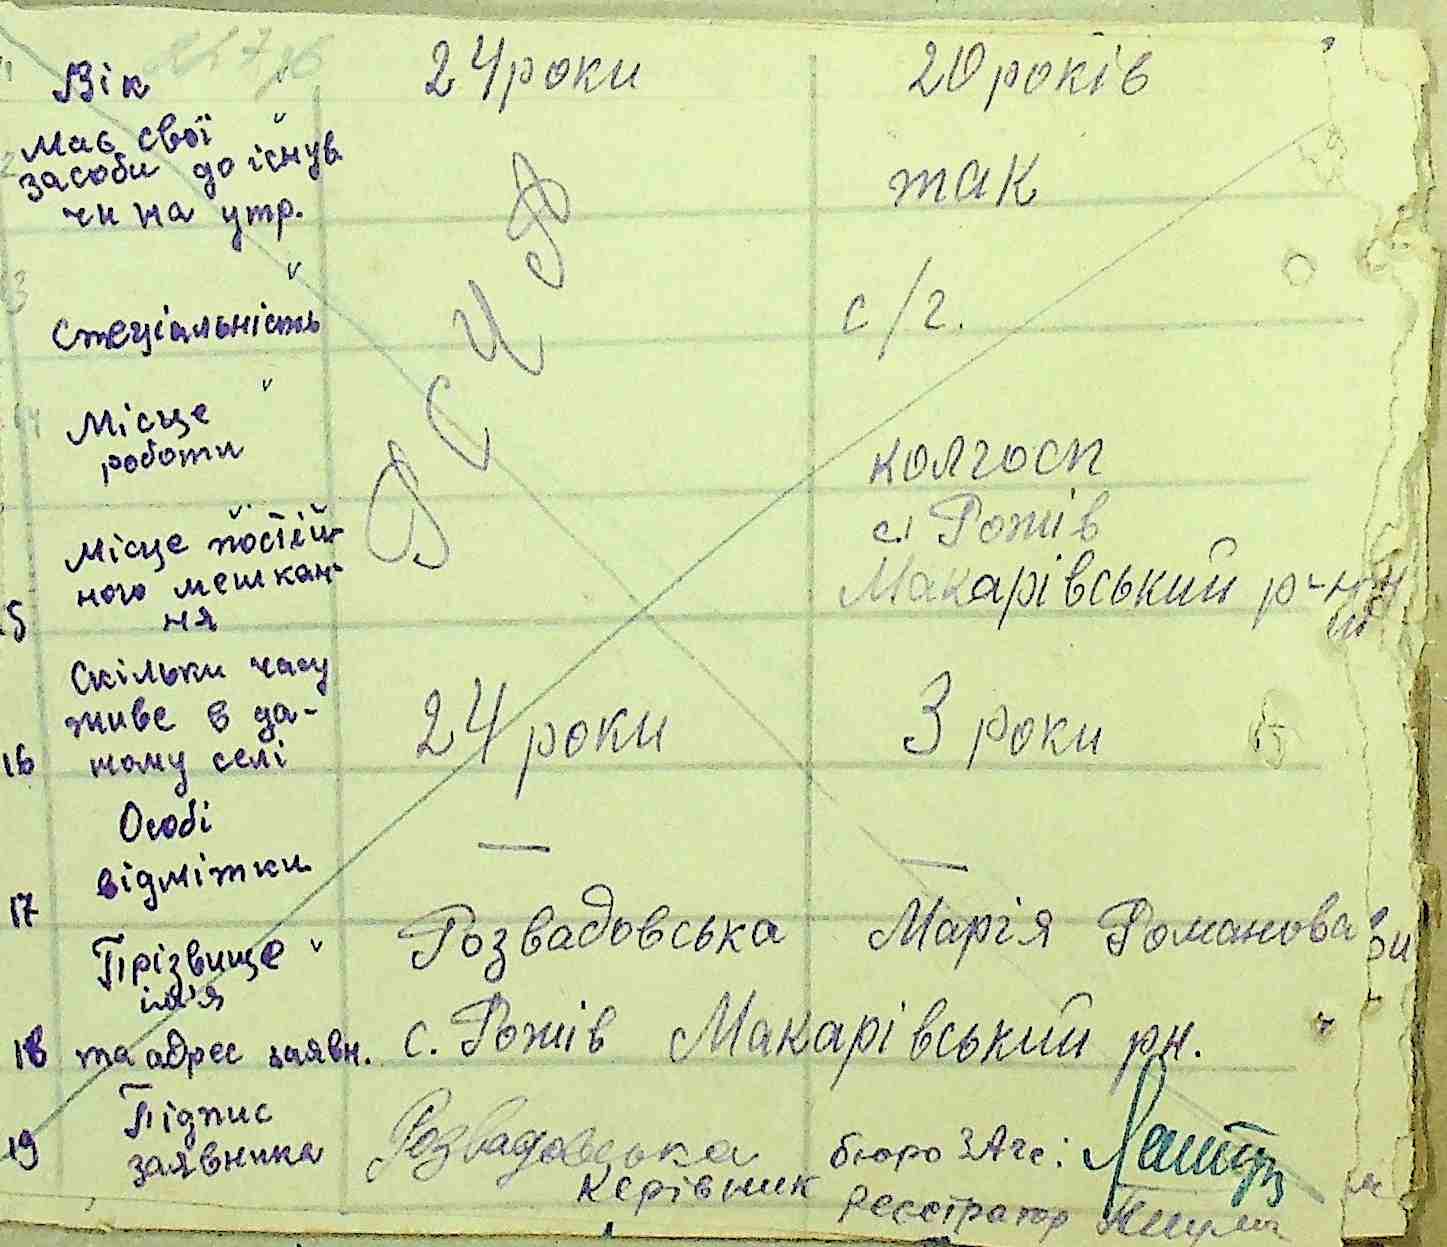 Вік 24 роки 20 років
Має свої
засоби до існув. так
чи на утр.
Спеціальність с/г.
Місце
роботи колгосп
Місце постій- с. Рожів
ного мешкан- Макарівський р-н
15 ня
Скільки часу
живе в да- 24 роки 3 роки
16 ному селі
Особі
відмітки — —
17
Прізвище Розвадовська Марія Романова
ім'я
18 та адрес заявн. с. Рожів Макарівський рн.
Підпис
19 заявника Розвадовська бюро ЗАГС:
Керівник Реєстратор